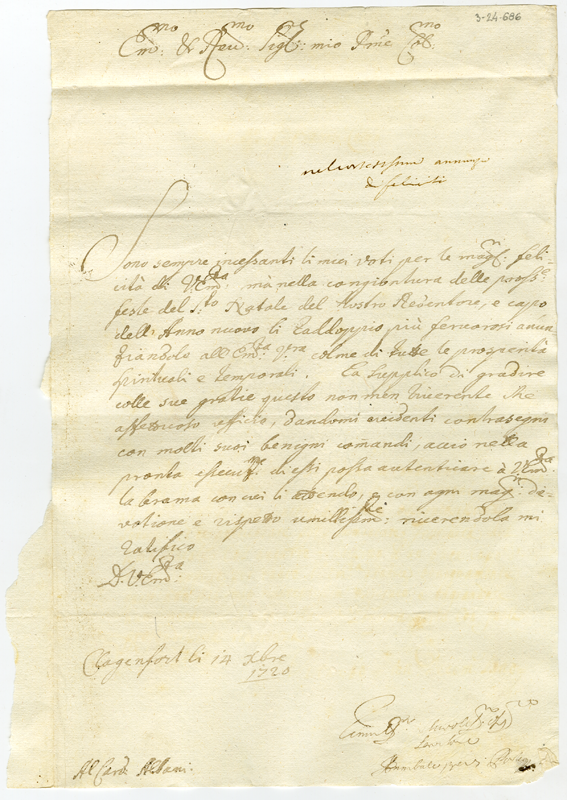 3-24-686
Em:mo & Reu:mo Sigr: mio Pne Col:mo
annunzi
di felicità
Sono sempre incessanti li miei voti per le magr: feli-
cità di VEm:za mà nella congiontura delle pross:e
feste del S:to Natale del Nostro Redentore, e capo
dell'Anno nuovo li raddoppio più feruorosi annun
ziandole all'Em:za V:ra colme di tutte le prosperità
spirituali e temporali. La supplico di gradire
colle sue gratie questo non men riuerente che
affettuoso officio, dandomi euidenti contrasegni
con molti suoi benigni comandi, acciò nella
pronta essecut:ne di essi possa autenticare à VEm:za
la brama con cui li attendo, e con ogni magr: di-
uotione e rispetto umilissim:te riuerendola mi
ratifico
D. V.Em:za
Clagenfort li 14 Xbre
1720
Al Card. Albani.